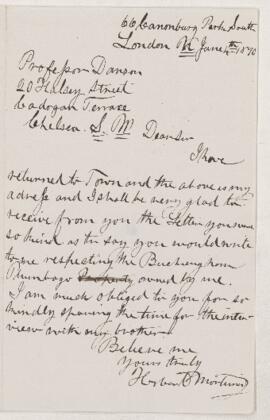 66 Canonbury Park South
London N June 4th 1870
Professor Danson
20 Halsey Street
Cadogan Terrace
Chelsea. S. W. Dear Sir
I have
returned to Town and the above is my
adress and I shall be very glad to
receive from you the Letter you were
so kind as to say you would write
to me respecting the Buckingham
Plumbago Property owned by me.
I am much obliged to you for so
kindly sparing the time for the inter-
view with my brother
Believe me
yours truly
Herbert